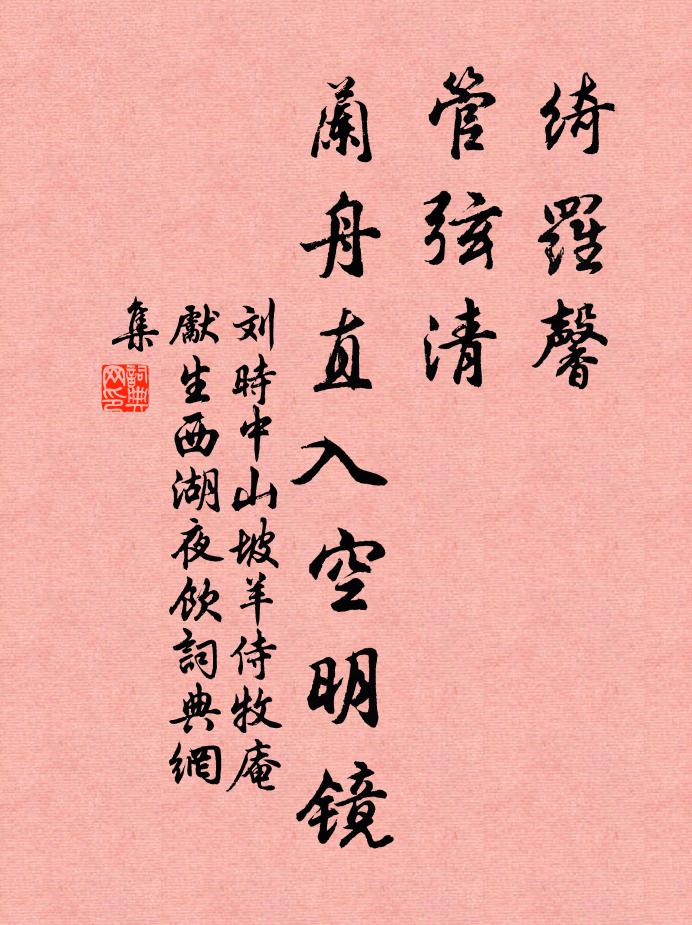 綺羅馨
管弦清
蘭舟直入空明鏡
刘時中山坡羊侍牧庵
獻生西湖夜飲詞典網
集
詞典網印